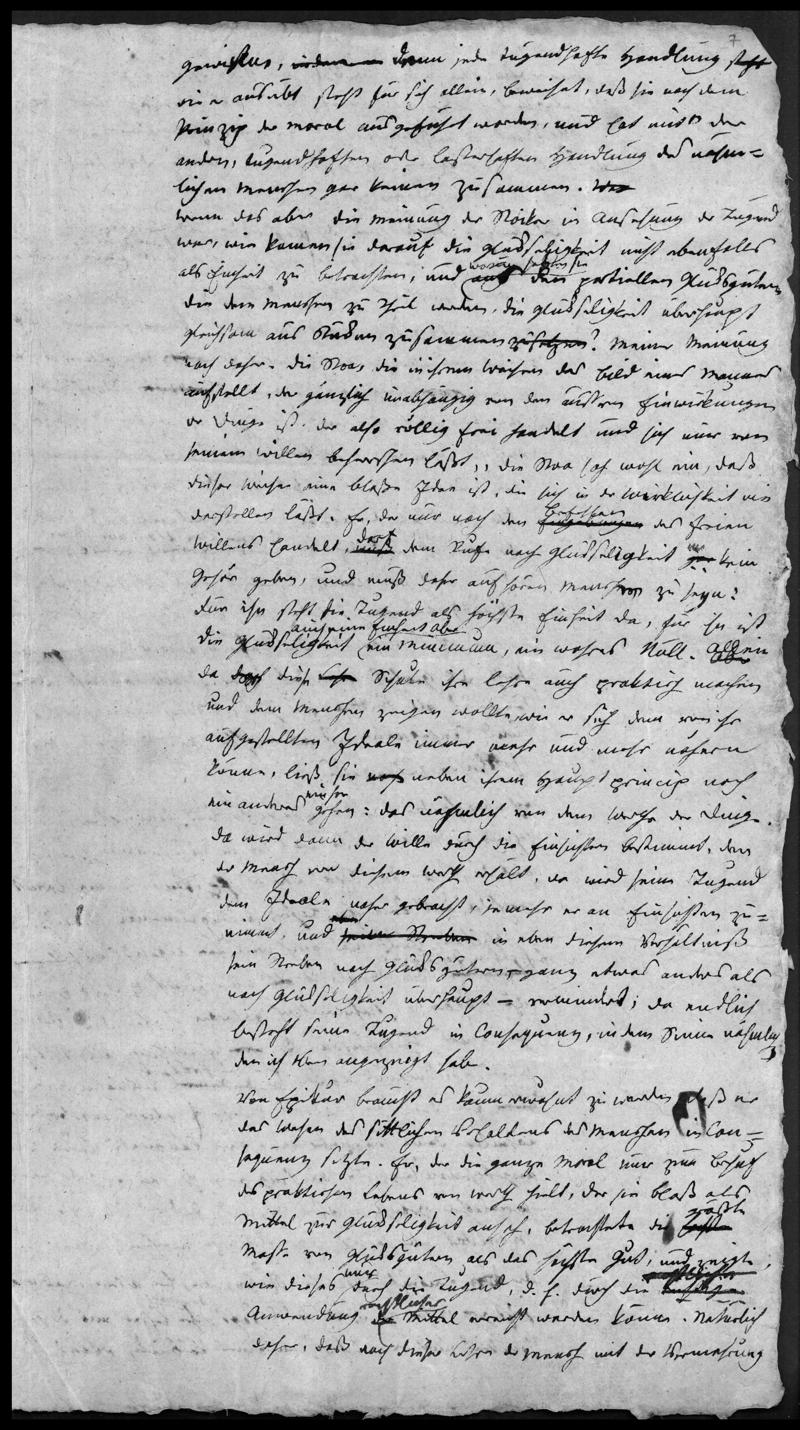 7
gewisses, denn jede tugendhafte Handlung steht
die er ausübt steht für sich allein, beweiset, daß sie nach dem
Prinzip der Moral ausgeführt worden, und hat mit der
andern, tugendhaften oder lasterhaften Handlung des nähm=
lichen Menschen gar keinen Zusammen.
Wenn das aber die Meinung der Stoiker in Ansehung der Tugend
war, wie kamen sie darauf die Glükseligkeit nicht ebenfalls
als Einheit zu betrachten; und warum setzten sie aus den partiellen Glüksgütern
die dem Menschen zu Theil werden, die Glükseligkeit überhaupt
gleichsam aus Stüken zusammen zusetzen? Meiner Meinung
nach daher. Die Stoa, die in ihrem Weisen das Bild eines Mannes
aufstellt, der gänzlich unabhängig von den äussern Einwirkungen
der Dinge ist. der also völlig frei handelt und sich nur von
seinem Willen beherrschen läßt, die Stoa sah wohl ein, daß
dieser Weise eine bloße Idee ist, die sich in der Wirklichkeit nie
darstellen läßt. Er, der nur nach den Gesetzen Eingebungen des freien
Willens handelt, darf muß dem Rufe nach Glükseligkeit gar kein
Gehör geben, und muß daher aufhören Mensch zu seyn:
Für ihn steht die Tugend als höchste Einheit da, für ihn ist
die Glükseligkeit auch eine Einheit aber ein Minimum, ein wahres Null. Allein
da diese Schule ihre Lehre auch praktisch machen
und dem Menschen zeigen wollte, wie er sich dem von ihr
aufgestellten Ideale immer mehr und mehr nähern
könne, ließ sie neben ihrem Hauptprincip noch
ein anderes gehen: das nähmlich von dem Werthe der Dinge.
Da wird dann der Wille durch die Einsichten bestimmt, den
der Mensch von diesem Werth erhält, da wird seine Tugend
dem Ideale näher gebracht, je mehr er an Einsichten zu=
nimmt, und in eben diesem Verhältniß
sein Streben nach Glüksgütern – ganz etwas anders als
nach Glükseligkeit überhaupt – vermindert; da endlich
besteht seine Tugend in Consequenz, in dem Sinne nähmlich
den ich oben angezeigt habe.
Von Epikur braucht es kaum erwähnt zu werden daß er
das Wesen des sittlichen Verhaltens des Menschen in Con=
sequenz setzte. Er, der die ganze Moral nur zum Behuf
des praktischen Lebens von Werth hielt, der sie bloß als
Mittel zur Glükseligkeit ansah, betrachtete die größte
Masse von Glüksgütern als das höchste Gut, und zeigte,
wie dieses nur durch die Tugend, d. h. durch die
Anwendung der Mittel erreicht werden könne. Natürlich
daher, daß nach dieser Lehre der Mensch mit der Vermehrung